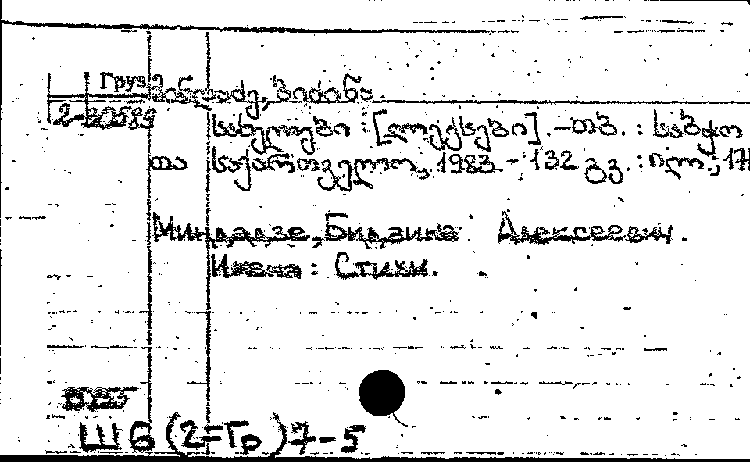 Груз
მინდაძე, ბიძინა
2-20589 სახელები : [ლექსები]. – თბ. : საბჭო
თა საქართველო, 1983. – 132 გვ. : ილ.; 17
Миндадзе, Бидзина Алексеевич.
Имена : Стихи.
Ш6(2=Гр)7-5